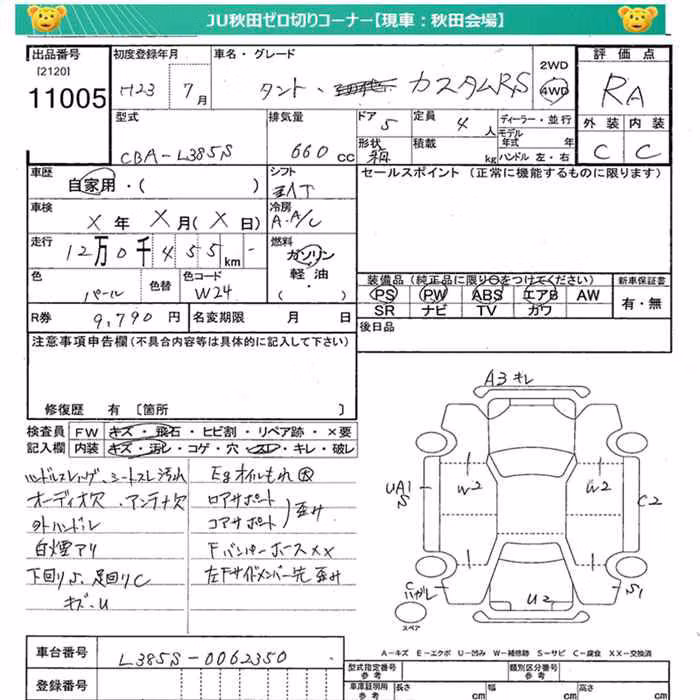 JU秋田ゼロ切りコーナー【現車：秋田会場】
出品番号
[2120]
11005
初度登録年月
H23 7月
車名・グレード
タント・ カスタムRS
2WD
4WD
評価点
RA
外装 内装
C C
型式
CBA-L385S
排気量
660cc
ドア
5
形状
箱
定員
4人
積載
kg
ディーラー・並行
モデル
年式 年
ハンドル 左・右
車歴
自家用・( )
シフト
冷房
A・A/C
セールスポイント (正常に機能するものに限ります)
車検
X年 X月(X日)
走行
12万0千455km
燃料
ガソリン
軽油
・( )
色
パール
色替
色コード
W24
装備品(純正品に限り〇をつけてください)
PS PW ABS エアB AW
SR ナビ TV カワ
新車保証書
有・無
R券 9,790円
名変期限 月 日
後日品
注意事項申告欄(不具合内容等は具体的に記入して下さい)
修復歴 有 [箇所 ]
検査員
記入欄
FW キズ・飛石・ヒビ割・リペア跡・×要
内装 キズ・汚レ・コゲ・穴・スレ・キレ・破レ
ハンドルスレ シートスレ汚れ
オーディオ欠 アンテナ欠
外ハンドル
白煙アリ
下回りS 足回りC
キズ・U
Egオイルもれ大
ロアサポート
コアサポート
歪み
FバンパーホースXX
左Fサイドメンバー先歪み
A3キレ
UA1
S
W2
W2
C2
C
ハガレ
S1
U2
スペア
A-キズ E-エクボ U-凹み W-補修跡 S-サビ C-腐食 XX-交換済
車台番号
L385S-0062350
登録番号
型式指定番号
参考
類別区分番号
参考
車庫証明用
参考
長さ cm
幅 cm
高さ cm